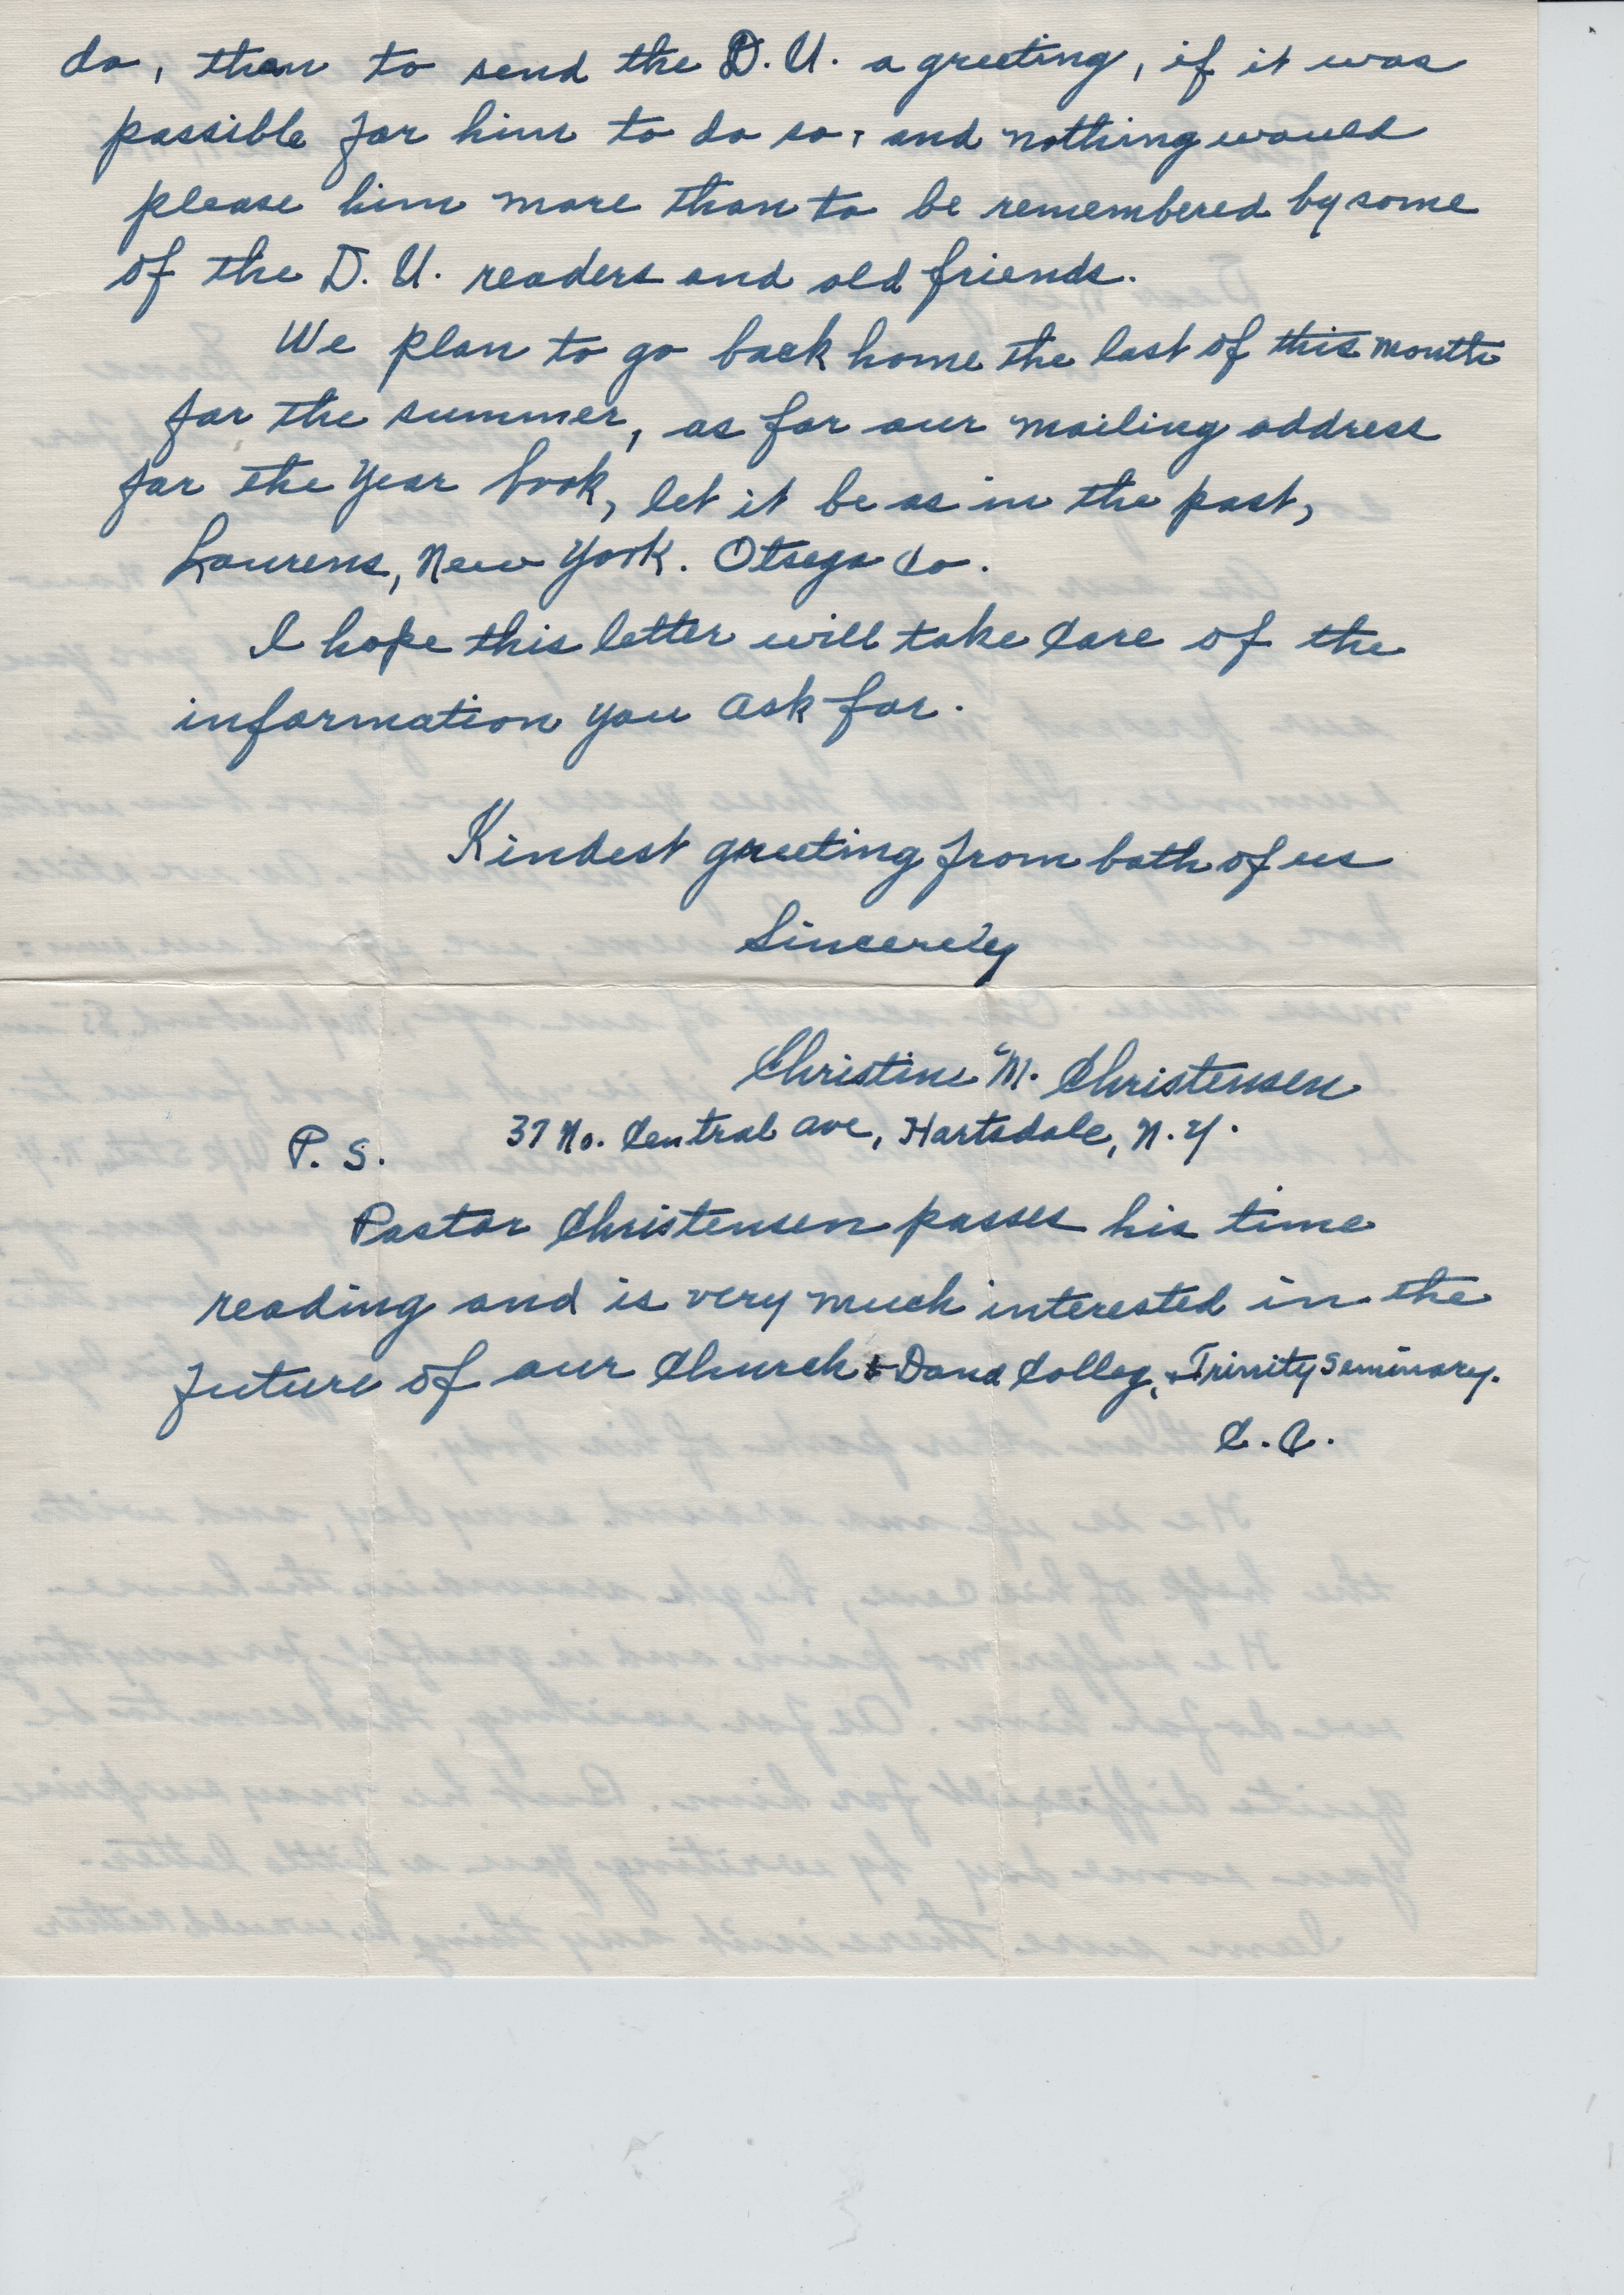 do, than to send the D. U. a greeting, if it was
possible for him to do so, and nothing would
please him more than to be remembered by some
of the D. U. readers and old friends.
We plan to go back home the last of this month
for the summer, as for our mailing address
for the Year book, let it be as in the past,
Laurens, New York. Otsego Co.
I hope this letter will take care of the
information you ask for.
Kindest greeting from both of us
Sincerely
Christine M. Christensen
37 No. Central Ave, Hartsdale, N.Y.
P. S.
Pastor Christensen passes his time
reading and is very much interested in the
future of our Church & Dana Colleg, & Trinity Seminary.
C. C.